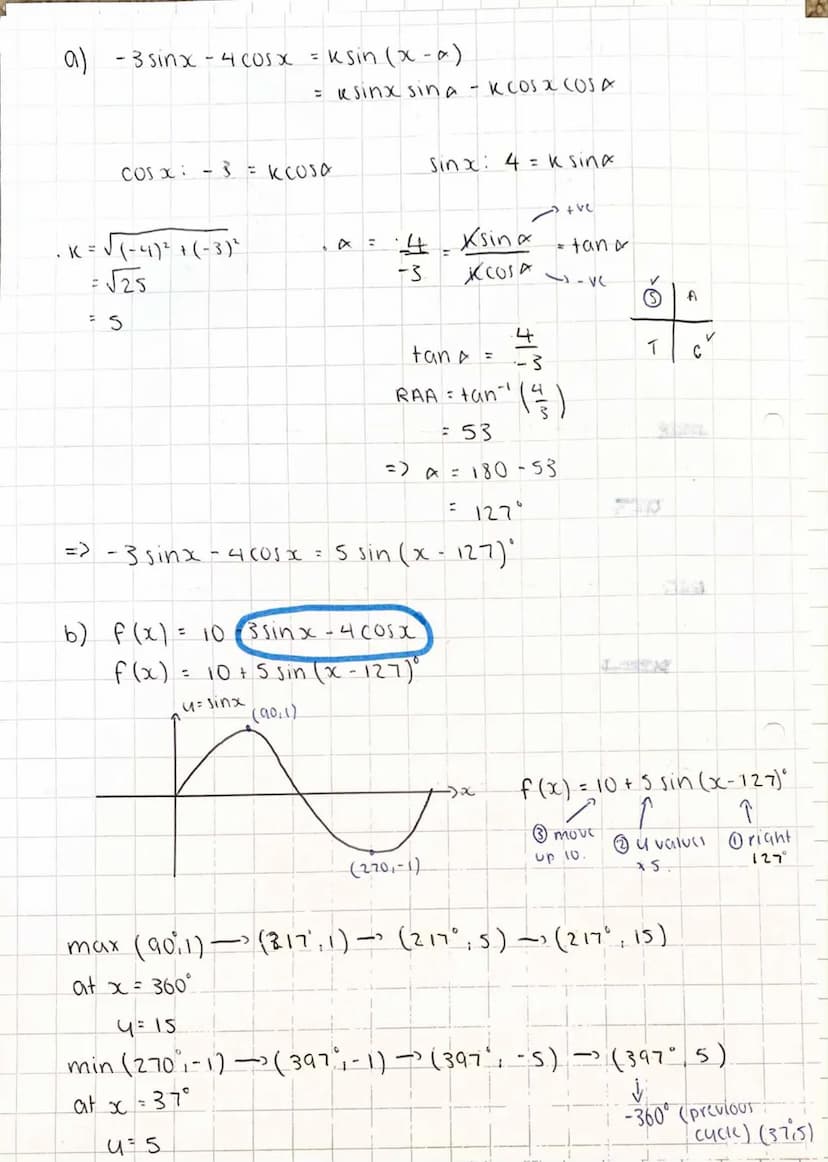 a) -3sinx - 4cosx = ksin(x-α)
= ksinx sinα - kcosxcosα
cosx: -3 = kcosα sinx: 4 = ksinα
. k = √(-4)² + (-3)² . α = 4/-3 = ksinα/kcosα = tanα
→ +ve
→ -ve
= √25
= 5
S A
T C
tanα = 4/-3
RAA = tan⁻¹(4/3)
= 53
=> α = 180 - 53
= 127°
=> -3sinx - 4cosx = 5sin(x - 127)°
b) f(x) = 10 -3sinx - 4cosx
f(x) = 10 + 5sin(x - 127)°
y=sinx
(90,1)
x
(270,-1)
f(x) = 10 + 5sin(x-127)°
③ move up 10. ② y values x5. ① right 127°
max (90°,1) → (217°,1) → (217°,5) → (217°,15)
at x = 360°
y = 15
min (270°,-1) → (397°,-1) → (397°,-5) → (397°,5)
at x = 37°
-360° (previous cycle) (37°,5)
y = 5